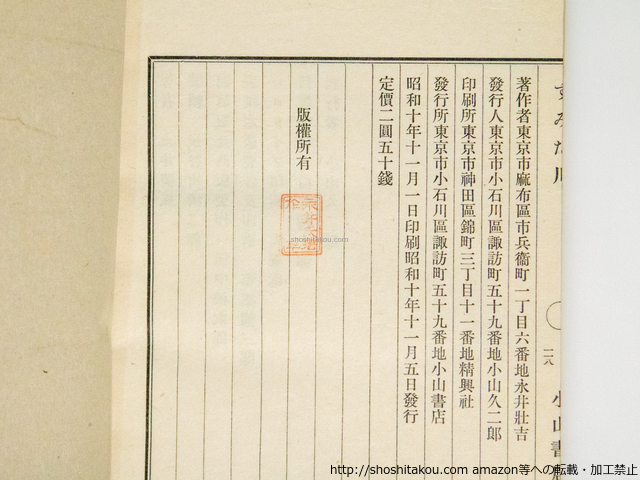 すみだ川
二八
小山書店
著作者東京市麻布區市兵衞町一丁目六番地永井壯吉
發行人東京市小石川區諏訪町五十九番地小山久二郎
印刷所東京市神田區錦町三丁目十一番地精興社
發行所東京市小石川區諏訪町五十九番地小山書店
昭和十年十一月一日印刷昭和十年十一月五日發行
定價二圓五十錢
版權所有
shoshitakou.com
http://shoshitakou.com amazon等への転載・加工禁止